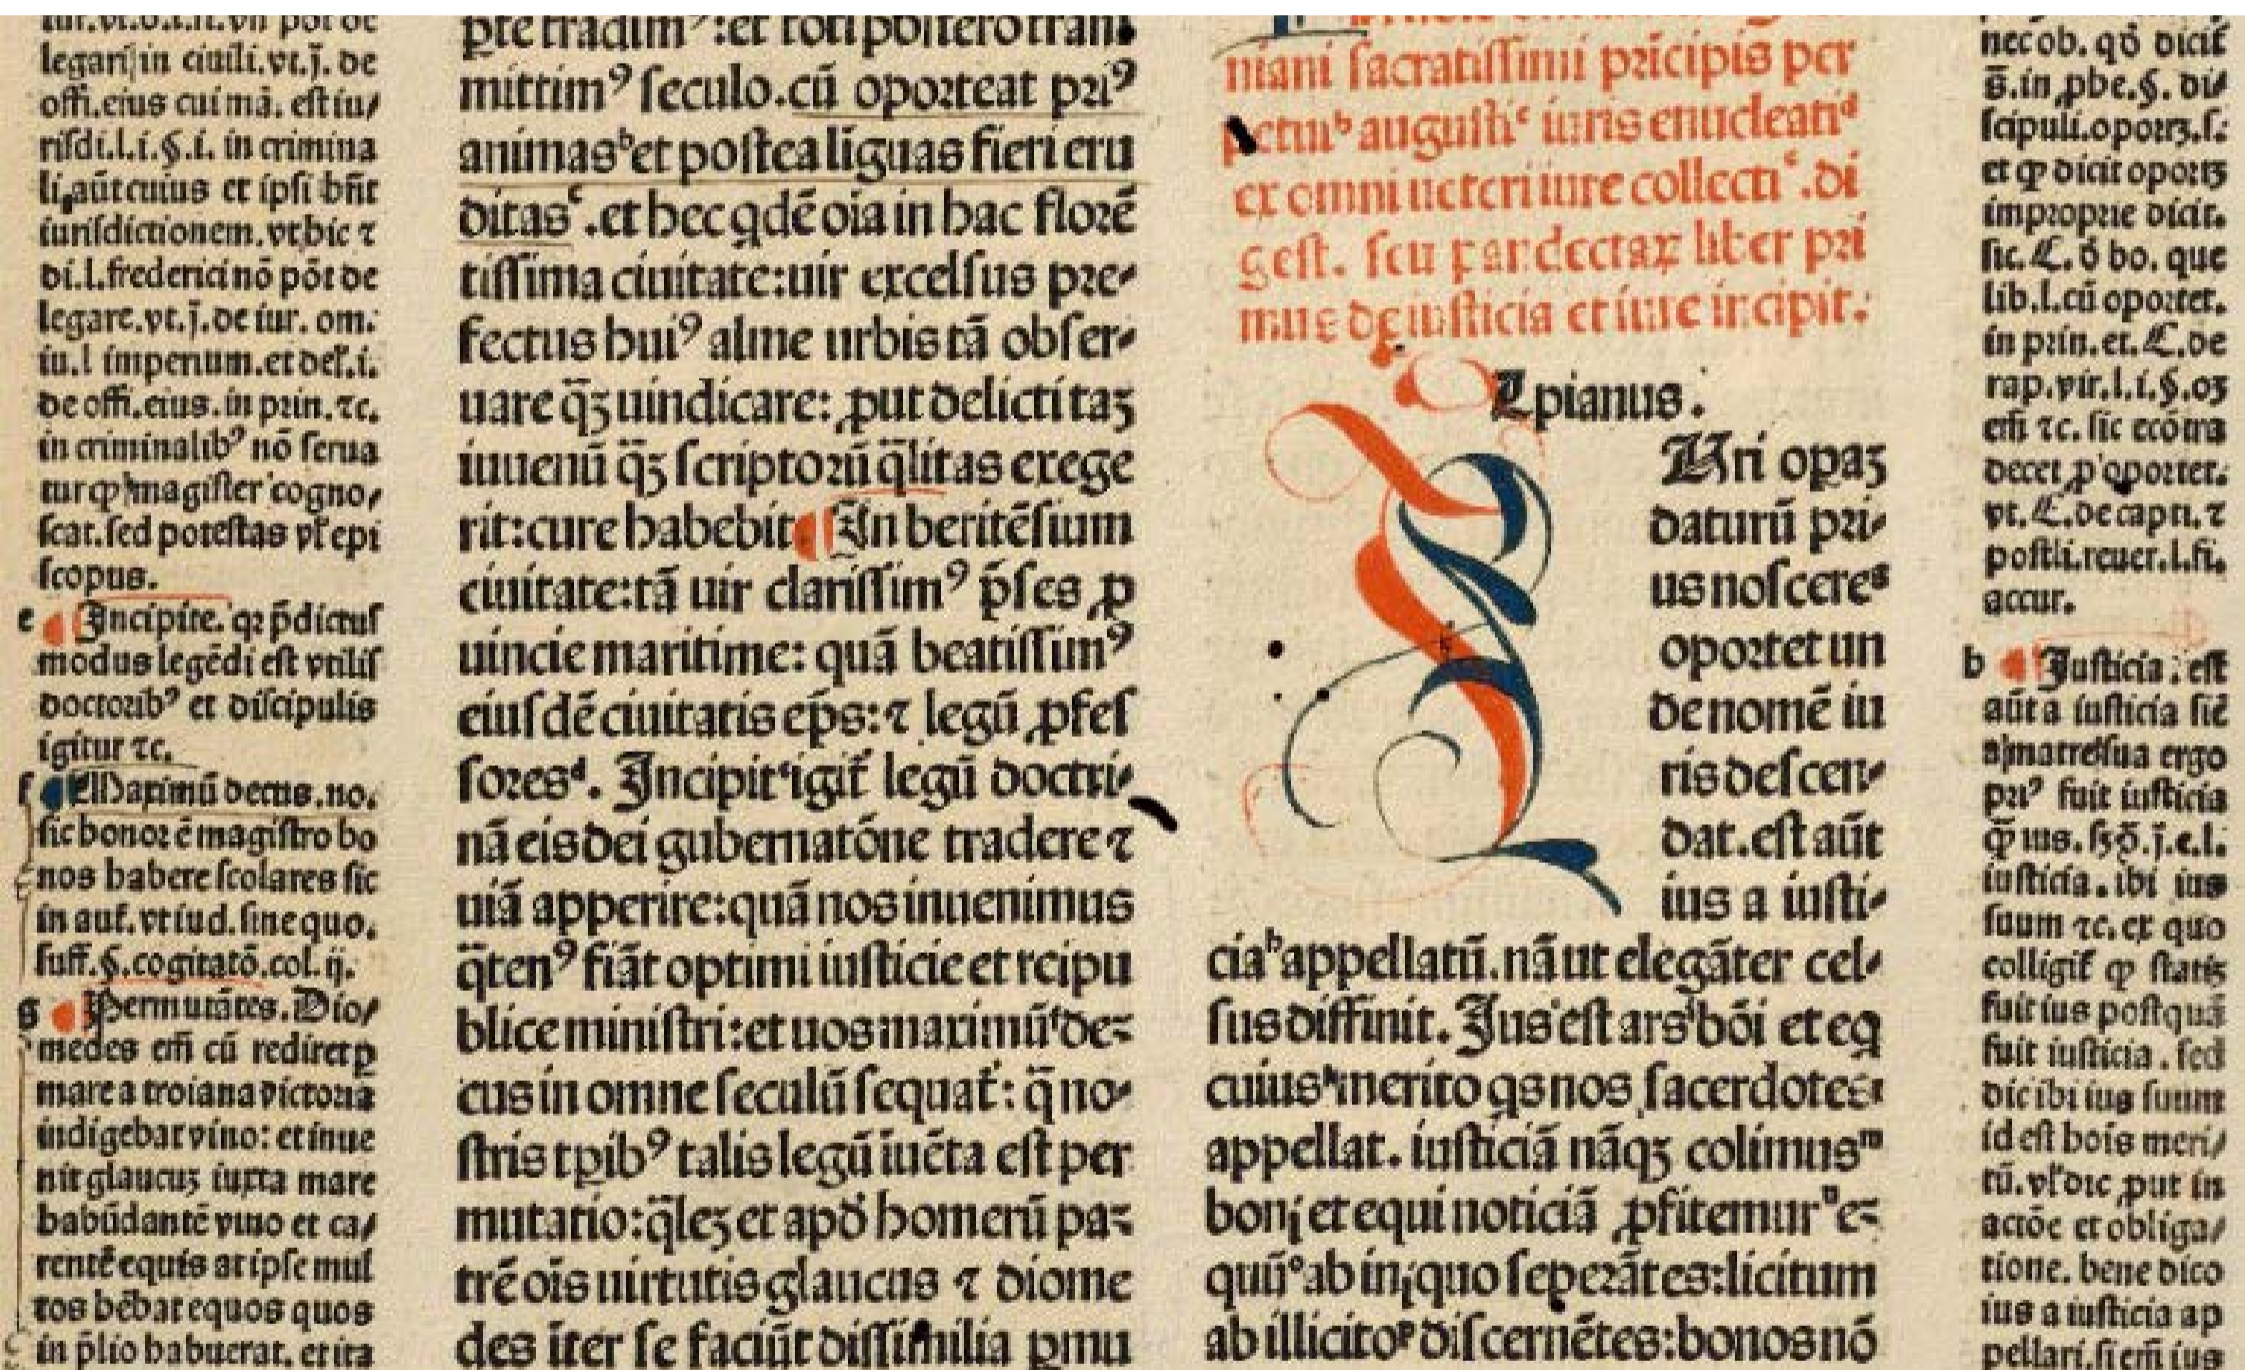 legari in ciuili.vt.j. de
offi.eius cui mā. est iu/
risdi.l.i.§.i. in crimina
li,aūt cuius et ipsi bn̄t
iurisdictionem.vt hic ⁊
di.l.frederici nō pōt de
legare.vt.j.de iur. om.
iu.l imperium.et def̄.i.
de offi.eius.in prin.⁊c.
in criminalibꝰ nō serua
tur ꝙ magister cogno/
scat.sed potestas vl̄ epi
scopus.
e ¶ Incipite. qꝛ p̄dictus
modus legēdi est vtilis
doctoribꝰ et discipulis
igitur ⁊c.
f ¶ Maximū decus.no.
sic bonoꝝ ē magistro bo
nos habere scolares sic
in aut̄.vt iud.sine quo.
suff.§.cogitatō.col.ij.
g ¶ Permutātes.Dio/
medes em̄ cū rediret ꝑ
mare a troiana victoria
indigebat vino: et inue
nit glaucuꝫ iuxta mare
habūdantē vino et ca/
rentē equis at ipse mul
tos hēbat equos quos
in p̄lio habuerat. et ita
p̄te tradimꝰ:et toti postero trans
mittimꝰ seculo.cū oporteat priꝰ
animasᵇet postea liguas fieri eru
ditasᶜ.et hec qdē oīa in hac florē
tissima ciuitate:uir excelsus pre-
fectus huiꝰ alme urbis tā obser-
uare q̄ꝫ uindicare: ꝓut delicti taꝫ
iuuenū q̄ꝫ scriptorū q̄litas exege
rit:cure habebit ¶ In beritēsium
ciuitate:tā uir clarissimꝰ p̄ses ꝓ
uincie maritime: quā beatissimꝰ
eiusdē ciuitatis ep̄s:⁊ legū ꝓfes
soresᵈ. Incipitᵉigit̄ legū doctri-
nā eis dei gubernatōne tradere ⁊
uiā apperire:quā nos inuenimus
q̄tenꝰ fiāt optimi iusticie et reipu
blice ministri:et uos maximūᶠde-
cus in omne seculū sequat̄: q̄ no-
stris tꝑibꝰ talis legū iuēta est per
mutatio:q̄leꝫ et apd̄ homerū pa-
trē oīs uirtutis glaucus ⁊ diome
des īter se faciūt dissimilia ꝑmu
niani sacratissimi pricipis per
petuiᵇ augustiᶜ iuris enucleatiᵈ
ex omni ueteri iure collectiᵉ.di
gest. seu pandectaꝝ liber pri
mus de iusticia et iure incipit:
Vlpianus.
IVri opaꝫ
daturū pri-
us noscereᵃ
oportet un
de nomē iu
ris descen-
dat.est aūt
ius a iusti-
ciaᵇappellatū.nā ut elegāter cel-
sus diffinit. Iusᶜest arsᵈbōi et eq
cuiusᵏmerito qs nos sacerdotes
appellat. iusticiā nāqꝫ colimusᵐ
boni et equi noticiā ꝓfitemurⁿe-
quūᵒab iniquo seperātes:licitum
ab illicitoᵖdiscernētes:bonos nō
nec ob. qd̄ dicit̄
s̄.in ꝓhe.§. di-
scipuli.oportꝫ.s:
et ꝙ dicit oportꝫ
improprie dicit.
sic.C.d̄ bo. que
lib.l.cū oportet.
in prin.et.C.de
rap.vir.l.i.§.oꝫ
em̄ ⁊c. sic ecōtra
decet ꝓ oportet.
vt.C.de capti.⁊
postli.reuer.l.fi.
accur.
b ¶ Iusticia : est
aūt a iusticia sic̄
a matre sua ergo
priꝰ fuit iusticia
q̄ ius. sꝫ d̄.j.e.l.
iusticia.ibi ius
suum ⁊c. ex quo
colligit̄ ꝙ statis
fuit ius postquā
fuit iusticia. sed
dic ibi ius suum
id est hoīs meri/
tū.vl̄ dic ꝓut in
actōe et obliga/
tione. bene dico
ius a iusticia ap
pellari.si em̄ ius